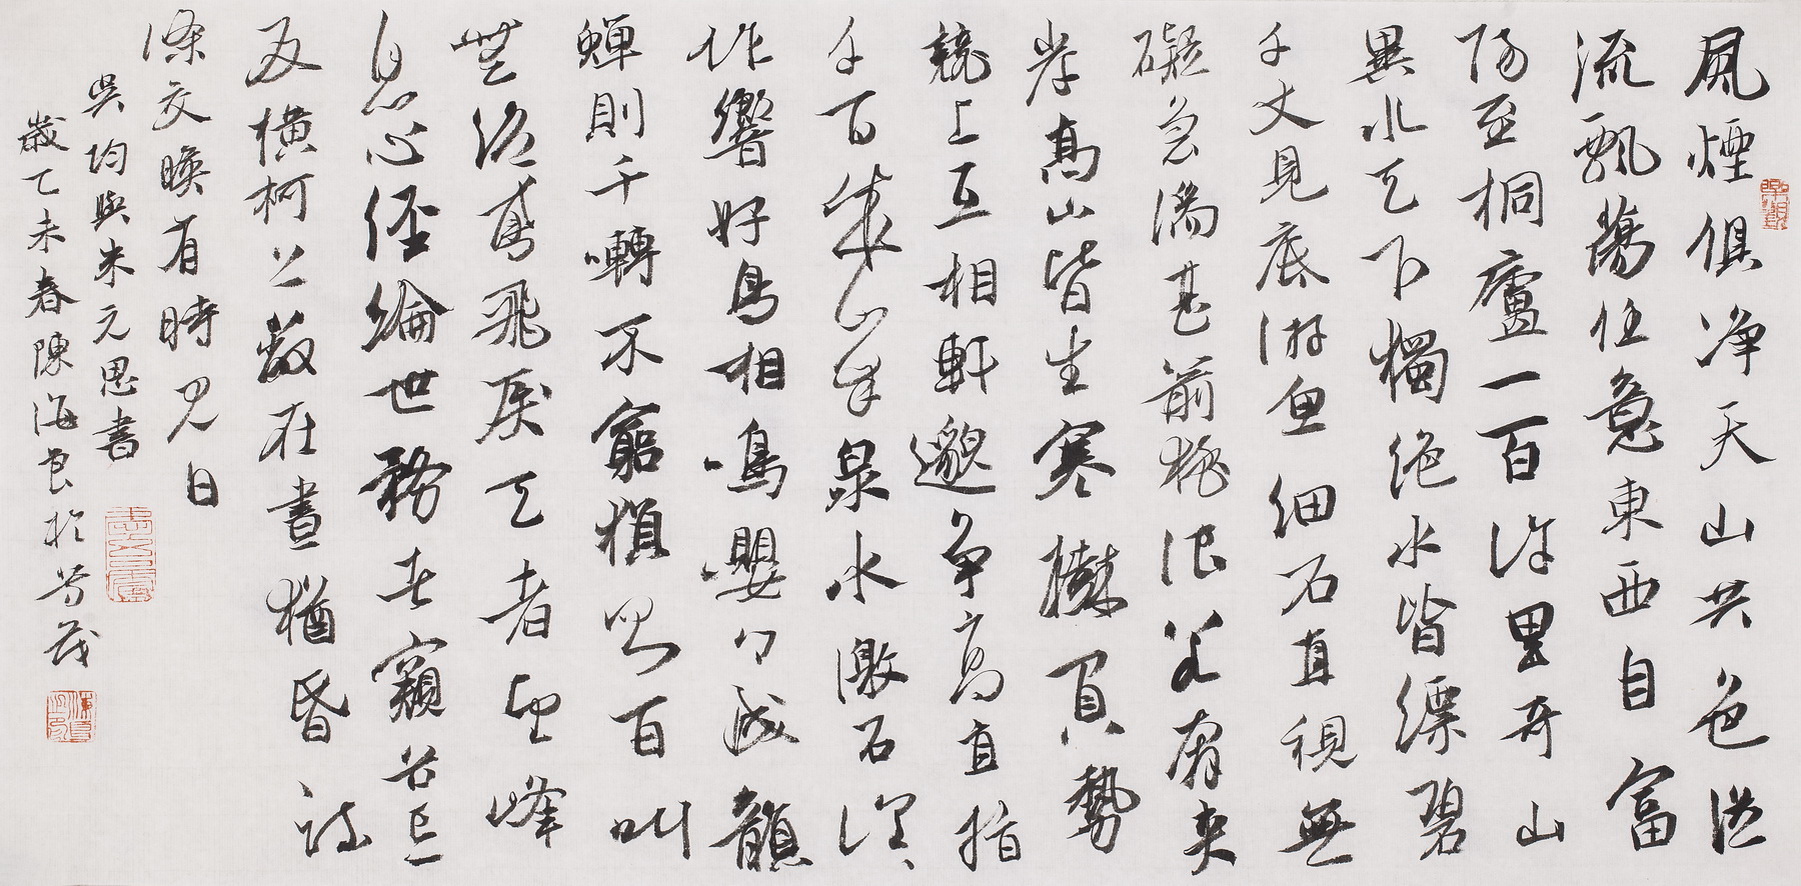 風煙俱净天山共色從
流飄蕩任意東西自富
陽至桐廬一百許里奇山
異水天下獨絕水皆縹碧
千丈見底游魚細石直視無
礙急湍甚箭猛浪若奔夾
岸高山皆生寒樹負勢
競上互相軒邈爭高直指
千百成峯泉水激石泠〻
作響好鳥相鳴嚶〻成韻
蟬則千囀不窮猿則百叫
無絕鳶飛戾天者望峰
息心經綸世務者窺谷忘
反橫柯上蔽在晝猶昏疎
條交暎有時見日
吳均與朱元思書
歲乙未春陳海良於芳茂